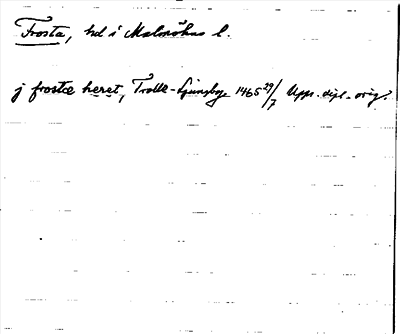 Frosta, hd i Malmöhus l.
j frostæ heret, Trolle-Ljungby 1465 29/7 Upps. dipl. orig.